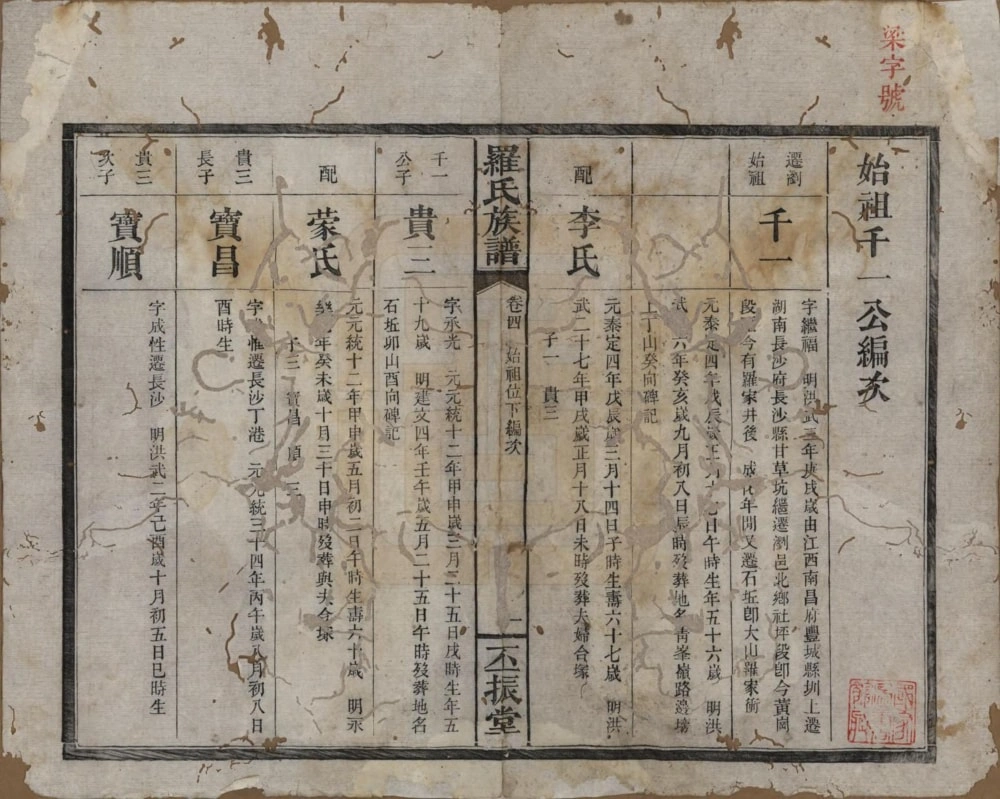 梁字號
始祖千一公編次
遷瀏
始祖
千一
字繼福 明洪武三年庚戌歲由江西南昌府豐城縣圳上遷
湖南長沙府長沙縣甘草坑繼遷瀏邑北鄉社坪段卽今黃崗
段 今有羅家井後 成 年間又遷石坵卽大山羅家衝
元泰定四年戊辰歲正月 日午時生年五十六歲 明洪
武 六年癸亥歲九月初八日辰時歿葬地名靑峯嶺路邊墈
上丁山癸向碑記
配
李氏
元泰定四年戊辰歲三月十四日子時生壽六十七歲 明洪
武二十七年甲戌歲正月十八日未時歿葬夫婦合塚
子一 貴三
羅氏族譜
卷四 始祖位下編次
一
丕振堂
千一
公子
貴三
字永光 元元統十二年甲申歲三月二十五日戌時生年五
十九歲 明建文四年壬午歲五月二十五日午時歿葬地名
石坵卯山酉向碑記
配
蒙氏
元元統十二年甲申歲五月初二日午時生壽六十歲 明永
樂 年癸未歲十月三十日申時歿葬與夫合塚
子三 寶昌 順 三
貴三
長子
寶昌
字 惟遷長沙丁港 元元統三十四年丙午歲八月初八日
酉時生
貴三
次子
寶順
字成性遷長沙 明洪武二年己酉歲十月初五日巳時生